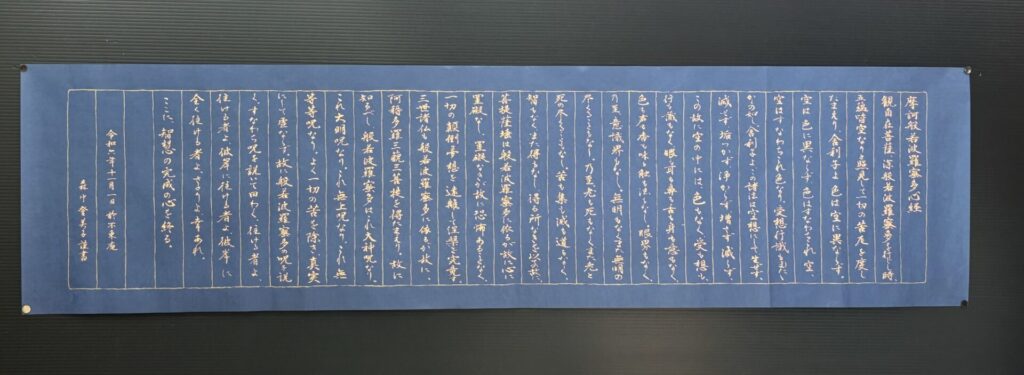 摩訶般若波羅蜜多心経
観自在菩薩深般若波羅蜜多を行ぜし時、
五蘊皆空なりと照見して一切の苦厄を度し
たまえり。舎利子よ色は空に異ならず、
空は色に異ならず色はすなわちこれ空、
空はすなわちこれ色なり。受想行識もまた
かくの如し。舎利子よこの諸法は空相にして生ぜず
滅せず垢つかず浄からず増さず減らず、
この故に空の中には、色もなく受も想も
行も識もなく眼も耳も鼻も舌も身も意もなく
色も声も香も味も触も法もなし。眼界もなく
乃至意識界もなし。無明もなくまた無明の
尽くることもなし。乃至老も死もなくまた老と
死の尽くることもなし。苦も集も滅も道もなく、
智もなくまた得もなし。得る所なきを以ての故に、
菩提薩埵は般若波羅蜜多に依るが故に心に
罣礙なし、罣礙なきが故に恐怖あることなく、
一切の顛倒夢想を遠離して涅槃を究竟す。
三世諸仏も般若波羅蜜多に依るが故に、
阿耨多羅三藐三菩提を得たまえり。故に
知るべし。般若波羅蜜多はこれ大神呪なり。
これ大明呪なり。これ無上呪なり。これ無
等等呪なり。よく一切の苦を除き、真実
にして虚ならず。故に般若波羅蜜多の呪を説く
すなわち呪を説いて曰わく、往ける者よ
往ける者よ、彼岸に往ける者よ彼岸に
全く往ける者よ、さとりよ、幸あれ、
ここに、智慧の完成の心を終る。
令和二年十一月一日 於不来庵
謹書